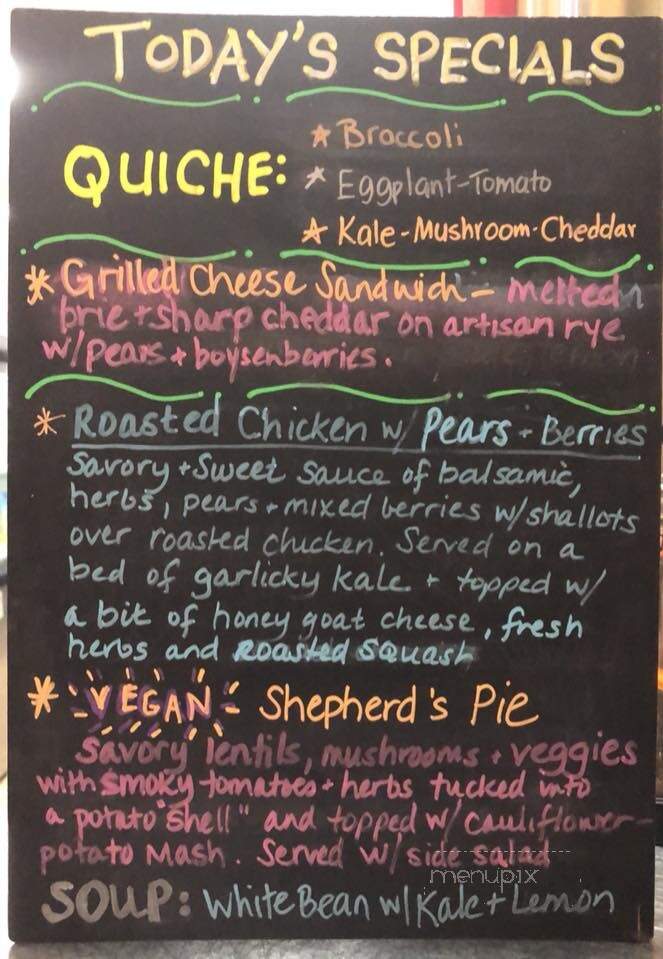 TODAY'S SPECIALS
QUICHE:
* Broccoli
* Eggplant-Tomato
* Kale-Mushroom-Cheddar
* Grilled Cheese Sandwich - melted
brie + sharp cheddar on artisan rye
w/pears + boysenberries.
* Roasted Chicken w/ Pears + Berries
Savory + Sweet sauce of balsamic,
herbs, pears + mixed berries w/shallots
over roasted chicken. Served on a
bed of garlicky kale + topped w/
a bit of honey goat cheese, fresh
herbs and roasted squash
* VEGAN Shepherd's Pie
Savory lentils, mushrooms + veggies
with smoky tomatoes + herbs tucked into
a potato "shell" and topped w/ cauliflower-
potato Mash. Served w/ side salad
menupix
SOUP: White Bean w/ Kale + Lemon